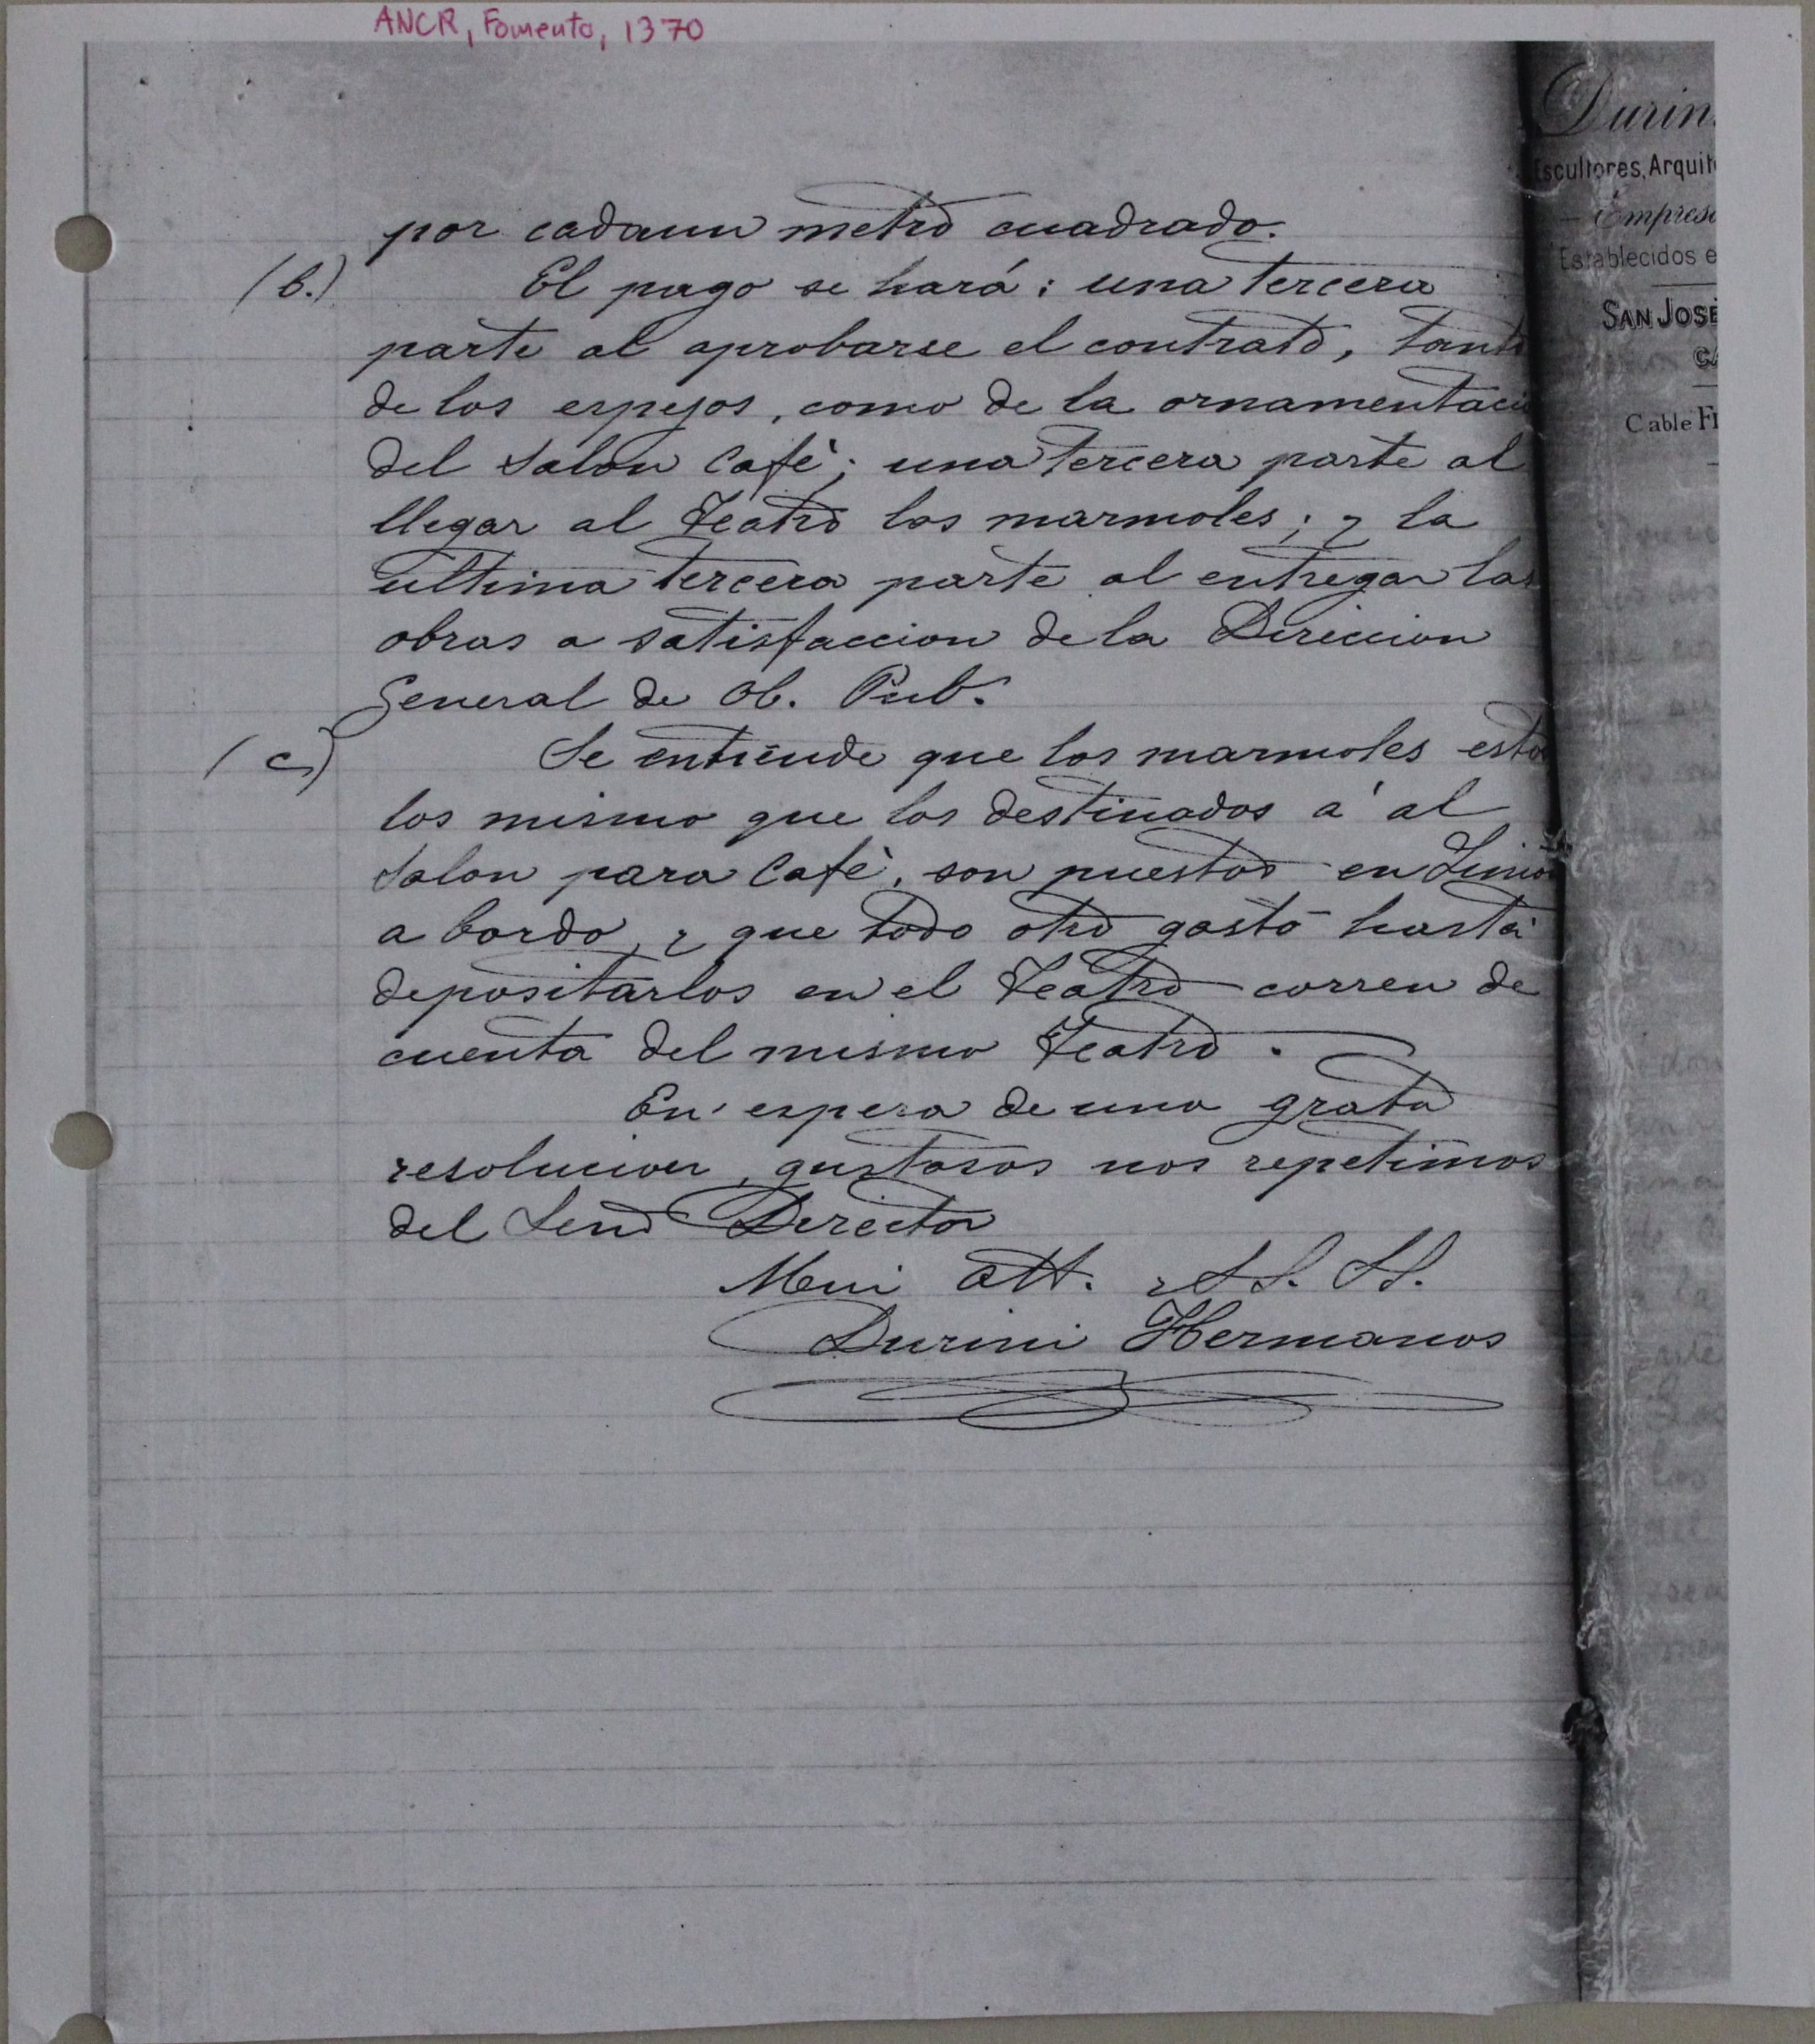 ANCR, Fomento, 1370
por cadaun metro cuadrado.
(b.) El pago se hará: una tercera
parte al aprobarse el contrato, tanto
de los espejos, como de la ornamentacio
del Salon Cafè; una tercera parte al
llegar al Teatro los marmoles; y la
ultima tercera parte al entregar las
obras a satisfaccion de la Direccion
General de Ob. Pub.
(c) Se entiende que los marmoles esto
los mismo que los destinados a' al
Salon para Cafè, son puestos en Limon
a bordo, y que todo otro gasto hasta
depositarlos en el Teatro corren de
cuenta del mismo Teatro.
En espera de una grata
resolucion, gustosos nos repetimos
del Señor Director
Mui att. y S.S. SS.
Durini Hermanos
Durin
Escultores, Arquit
Empres
Establecidos e
SAN JOSÉ
Cable